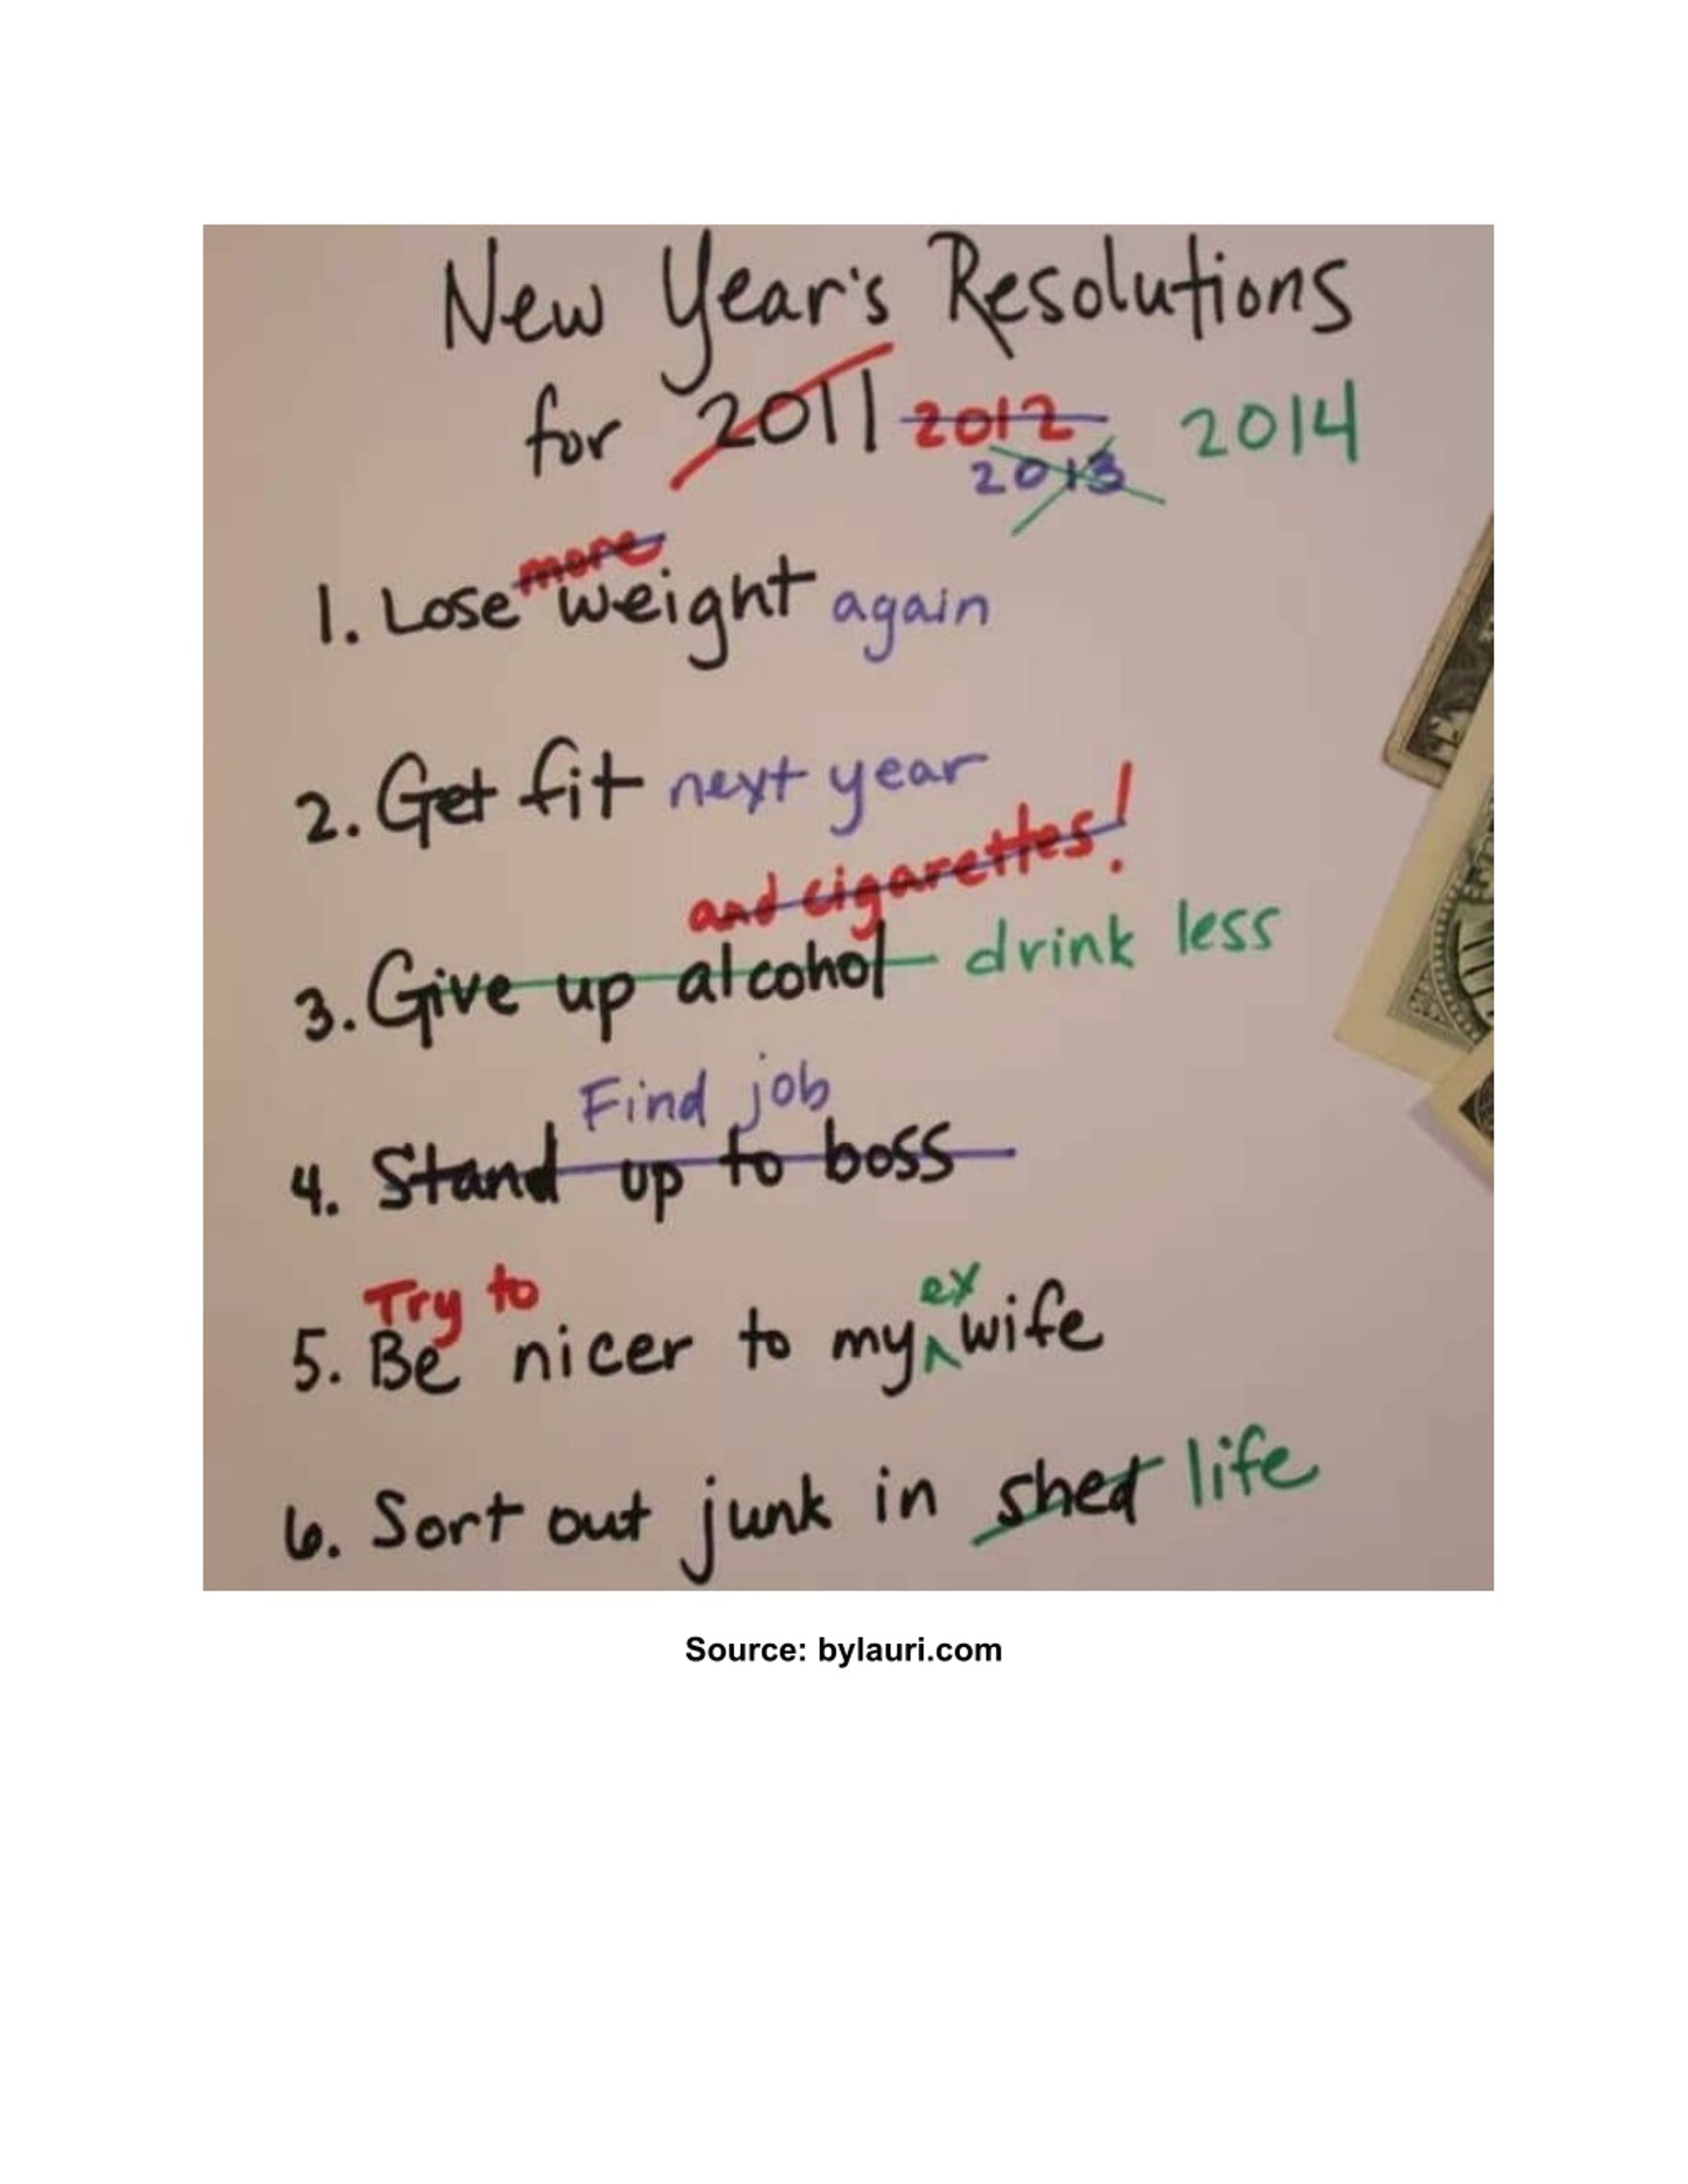 New Year's Resolutions
for 2011 2012 2014
2013
more
1. Lose weight again
2. Get fit next year
and cigarettes!
3. Give up alcohol drink less
Find job
4. Stand up to boss
Try to ex
5. Be nicer to my wife
6. Sort out junk in shed life
Source: bylauri.com